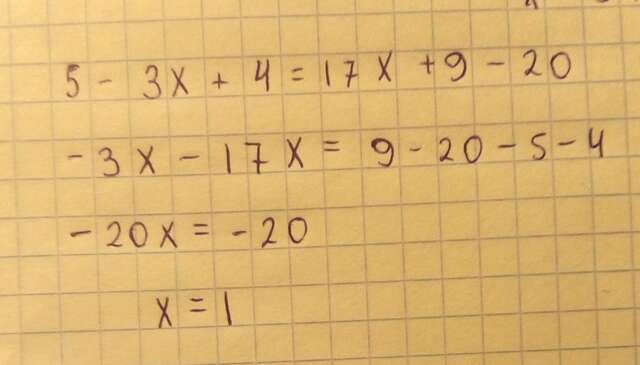 5 - 3x + 4 = 17x + 9 - 20
-3x - 17x = 9 - 20 - 5 - 4
-20x = -20
x = 1